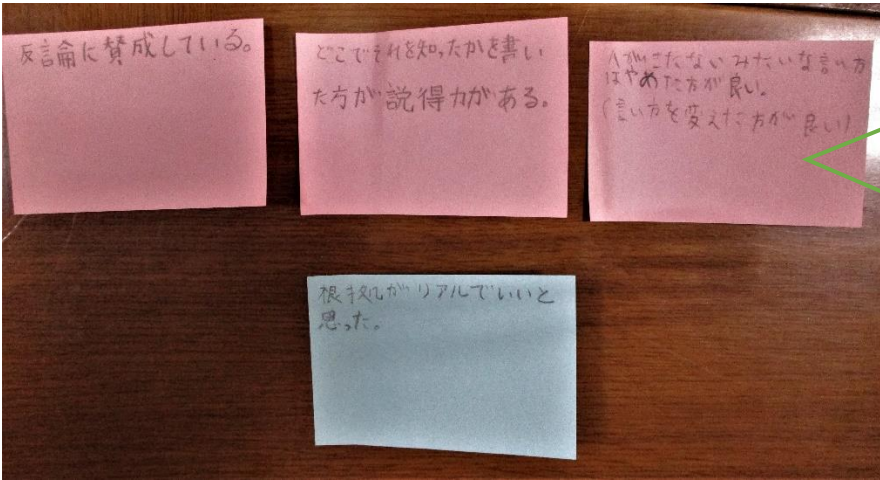 反言論に賛成している。
どこでそれを知ったかを書い
た方が説得力がある。
がきたないみたいな言い方
はやめた方が良い。
(言い方を変えた方が良い)
根拠がリアルでいいと
思った。